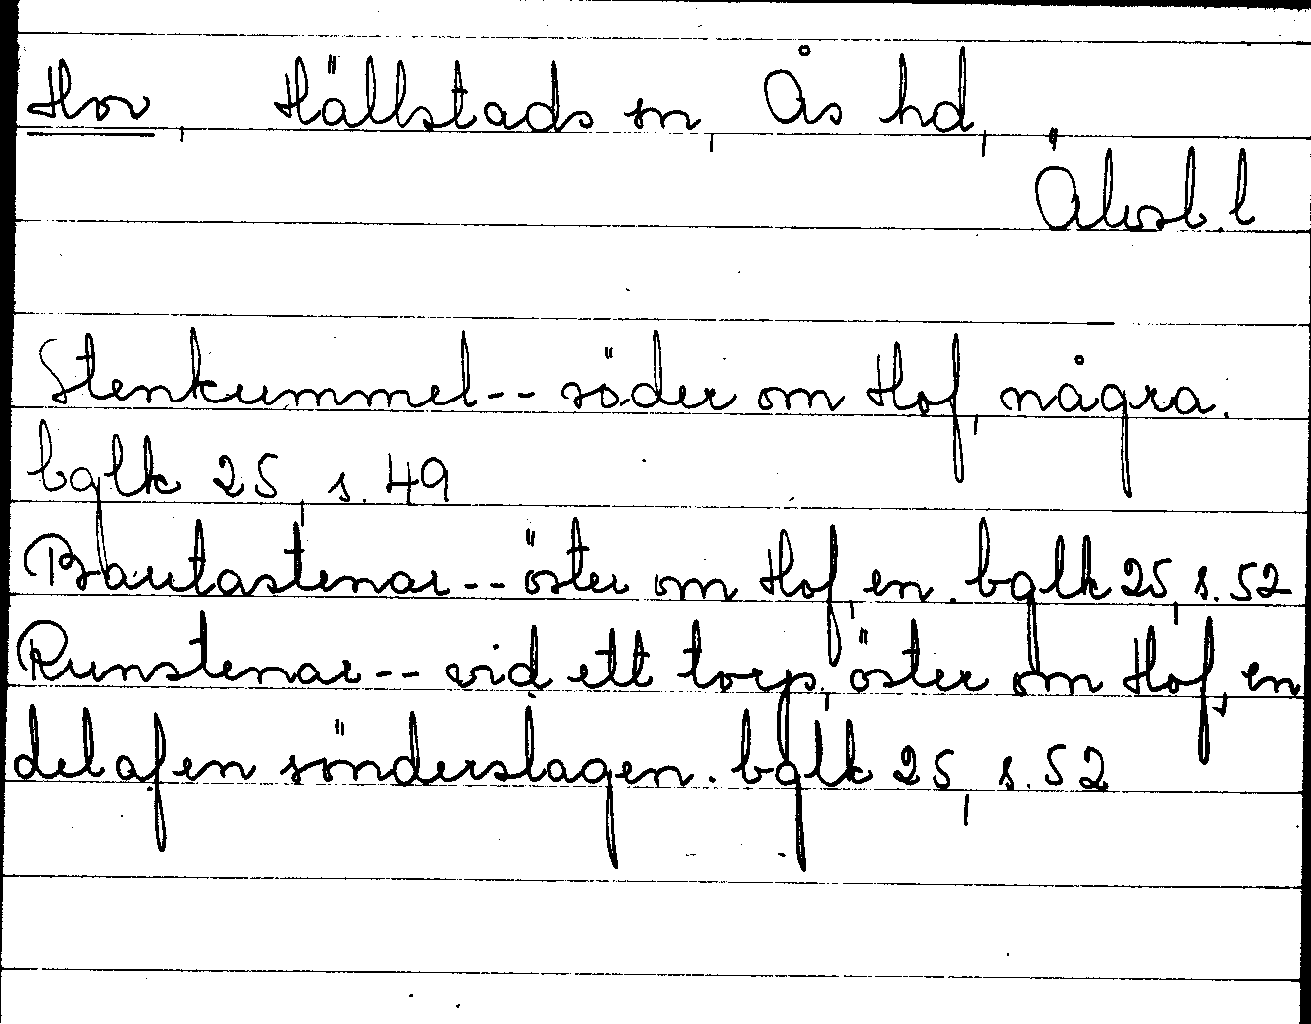 Hov, Hällstads sn, Ås hd,
Älvsb. l
Stenkummel-- söder om Hof, några.
bglk 25, s. 49
Bautastenar-- öster om Hof, en. bglk 25, s. 52
Runstenar-- vid ett torp, öster om Hof, en
del af en sönderslagen. bglk 25, s. 52